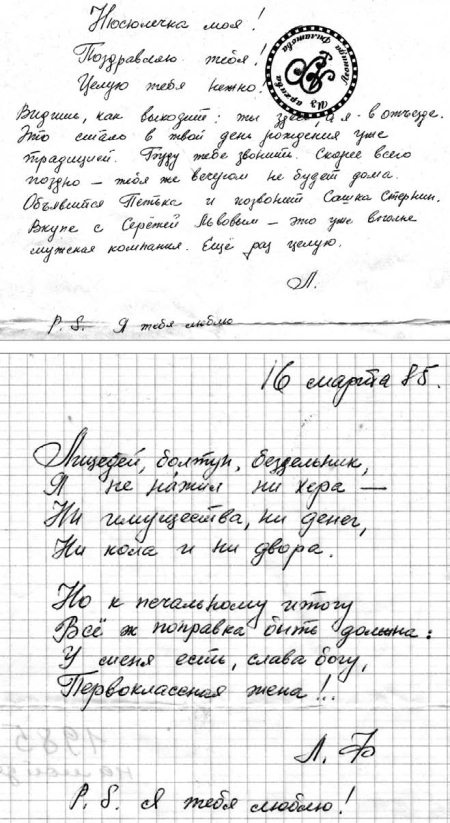 Нюсюлечка моя!
Поздравляю тебя!
Целую тебя нежно!
Из архива Леонида Филатова
Видишь, как выходит: ты здесь, а я - в отъезде.
Это стало в твой день рождения уже
традицией. Буду тебе звонить. Скорее всего
поздно – тебя же весугом не будет дома.
Объявится Петька и позвонит Сашка Стернин.
Вкупе с Серёжей Львовым – это уже вполне
мужская компания. Ещё раз целую.
Л.
P. S. Я тебя люблю
16 марта 85.
Лицедей, болтун, бездельник,
Я не нажил ни хера —
Ни имущества, ни денег,
Ни кола и ни двора.
Но к печальному итогу
Всё ж поправка быть должна:
У меня есть, слава богу,
Первоклассная жена!..
Л. Ф
P. S. Я тебя люблю!
1985